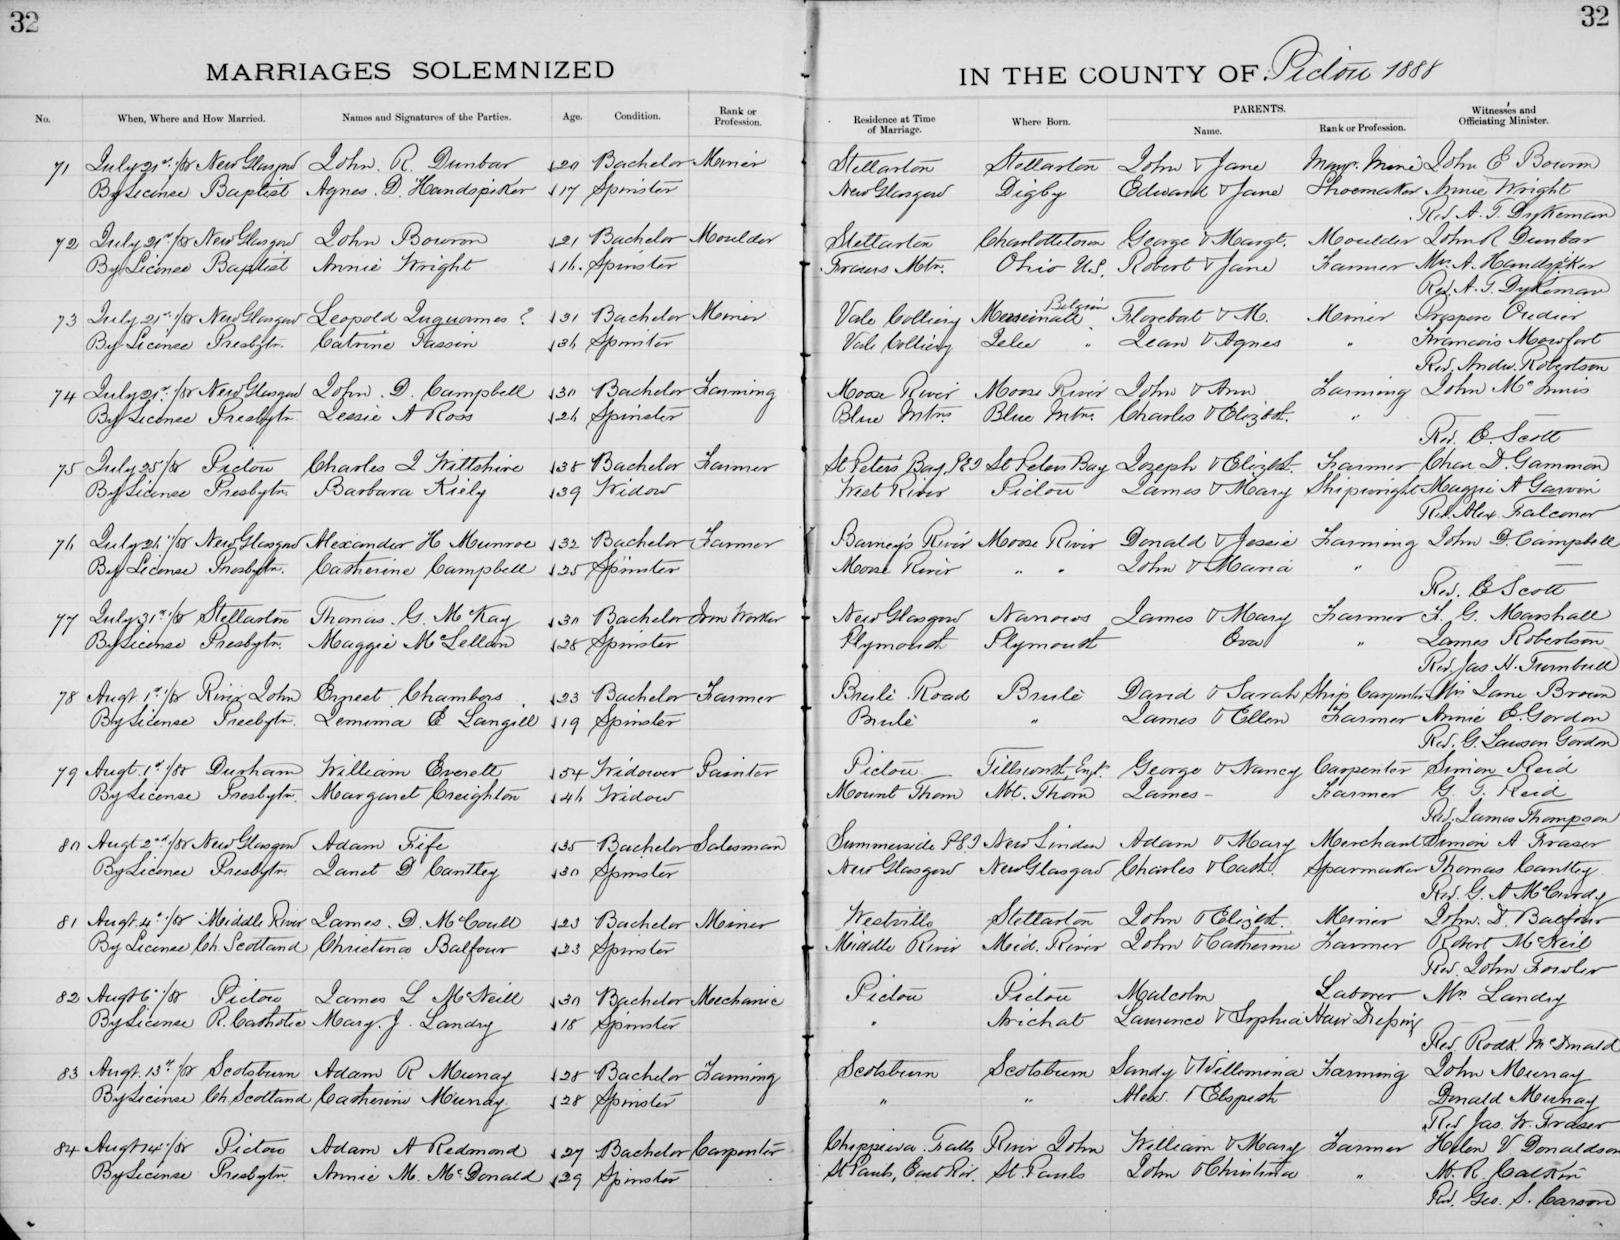 32
32
MARRIAGES SOLEMNIZED
IN THE COUNTY OF Pictou 1888
No. When, Where and How Married. Names and Signatures of the Parties. Age. Condition. Rank or Profession. Residence at Time of Marriage. Where Born. PARENTS. Name. Rank or Profession. Witnesses and Officiating Minister.
71 July 21st /88 New Glasgow John. R. Dunbar 20 Bachelor Miner Stellarton Stellarton John & Jane Mangr. Mine John E Bowron
By License Baptist Agnes. D. Handspiker 17 Spinster New Glasgow Digby Edward & Jane Shoemaker Annie Wright
Rev. A. T. Dykeman
72 July 21st /88 New Glasgow John Bowron 21 Bachelor Moulder Stellarton Charlottetown George & Margt. Moulder John R Dunbar
By License Baptist Annie Wright 16. Spinster Frasers Mtn. Ohio U.S. Robert & Jane Farmer Mrs. A. Handspiker
Rev. A. T. Dykeman
73 July 21st /88 New Glasgow Leopold ? 31 Bachelor Miner Vale Colliery Belgium & M. Miner Prospere
By License Presbytr. Catrine 36 Spinster Vale Colliery " Jean & Agnes " Francois
Rev. Andw. Robertson
74 July 21st /88 New Glasgow John. D. Campbell 30 Bachelor Farming Moose River Moose River John & Ann Farming John McInnis
By License Presbytr. Jessie A Ross 26 Spinster Blue Mtn. Blue Mtn. Charles & Elizbt. "
Rev. E. Scott
75 July 25 /88 Pictou Charles J Wiltshire 38 Bachelor Farmer St Peters Bay, PEI St Peters Bay Joseph & Elizbt. Farmer Chas D. Gammon
By License Presbytr. Barbara Kiely 39 Widow West River Pictou James & Mary Shipwright Maggie A Garvin
Rev. Alex. Falconer
76 July 26 /88 New Glasgow Alexander H Munroe 32 Bachelor Farmer Barney's River Moose River Donald & Jessie Farming John D. Campbell
By License Presbytr. Catherine Campbell 25 Spinster Moose River " " John & Maria "
Rev. E Scott
77 July 31st /88 Stellarton Thomas. G. McKay 30 Bachelor Iron Worker New Glasgow Narrows James & Mary Farmer F. G. Marshall
By License Presbytr. Maggie McLellan 28 Spinster Plymouth Plymouth Ewn " James Robertson
Rev. Jas. H. Turnbull
78 Augt 1st /88 River John Ernest Chambers 23 Bachelor Farmer Brule Road Brule David & Sarah Ship Carpenter Mrs Jane Brown
By License Presbytr. Jemima E Langill 19 Spinster Brule " James & Ellen Farmer Annie E. Gordon
Rev. G. Lawson Gordon
79 Augt. 1st /88 Durham William Everett 54 Widower Painter Pictou Tillsworth, Engt. George & Nancy Carpenter Simon Reid
By License Presbytr. Margaret Creighton 46 Widow Mount Thom Mt. Thom James - Farmer G. J. Reid
Rev. James Thompson
80 Augt 2nd /88 New Glasgow Adam Fife 35 Bachelor Salesman Summerside PEI New Linden Adam & Mary Merchant Simon A Fraser
By License Presbytr. Janet D Cantley 30 Spinster New Glasgow New Glasgow Charles & Cath. Sparmaker Thomas Cantley
Rev. G. A McCurdy
81 Augt. 4th /88 Middle River James. D. McCoull 23 Bachelor Miner Westville Stellarton John & Elizbt. Miner John. D. Balfour
By License Ch. Scotland Christina Balfour 23 Spinster Middle River Mid. River John & Catherine Farmer Robert McNeil
Rev. John Fowler
82 Augt 6th /88 Pictou James L McNeill 30 Bachelor Mechanic Pictou Pictou Malcolm Laborer Mrs Landry
By License R. Catholic Mary. J. Landry 18 Spinster " Arichat Lawrence & Sophia Hair Dressing
Rev. Rodk. McDonald
83 Augt. 13th /88 Scotsburn Adam R Murray 28 Bachelor Farming Scotsburn Scotsburn Sandy & Willemina Farming John Murray
By License Ch. Scotland Catherine Murray 28 Spinster " " Alex. & Elspeth Donald Murray
Rev Jas. W. Fraser
84 Augt 14th /88 Pictou Adam A Redmond 27 Bachelor Carpenter Chippiwa Falls River John William & Mary Farmer Helen V Donaldson
By License Presbytr. Annie M. McDonald 29 Spinster St Pauls, East Riv. St. Pauls John & Christina " M. R. Calkin
Rev. Geo. S. Carson